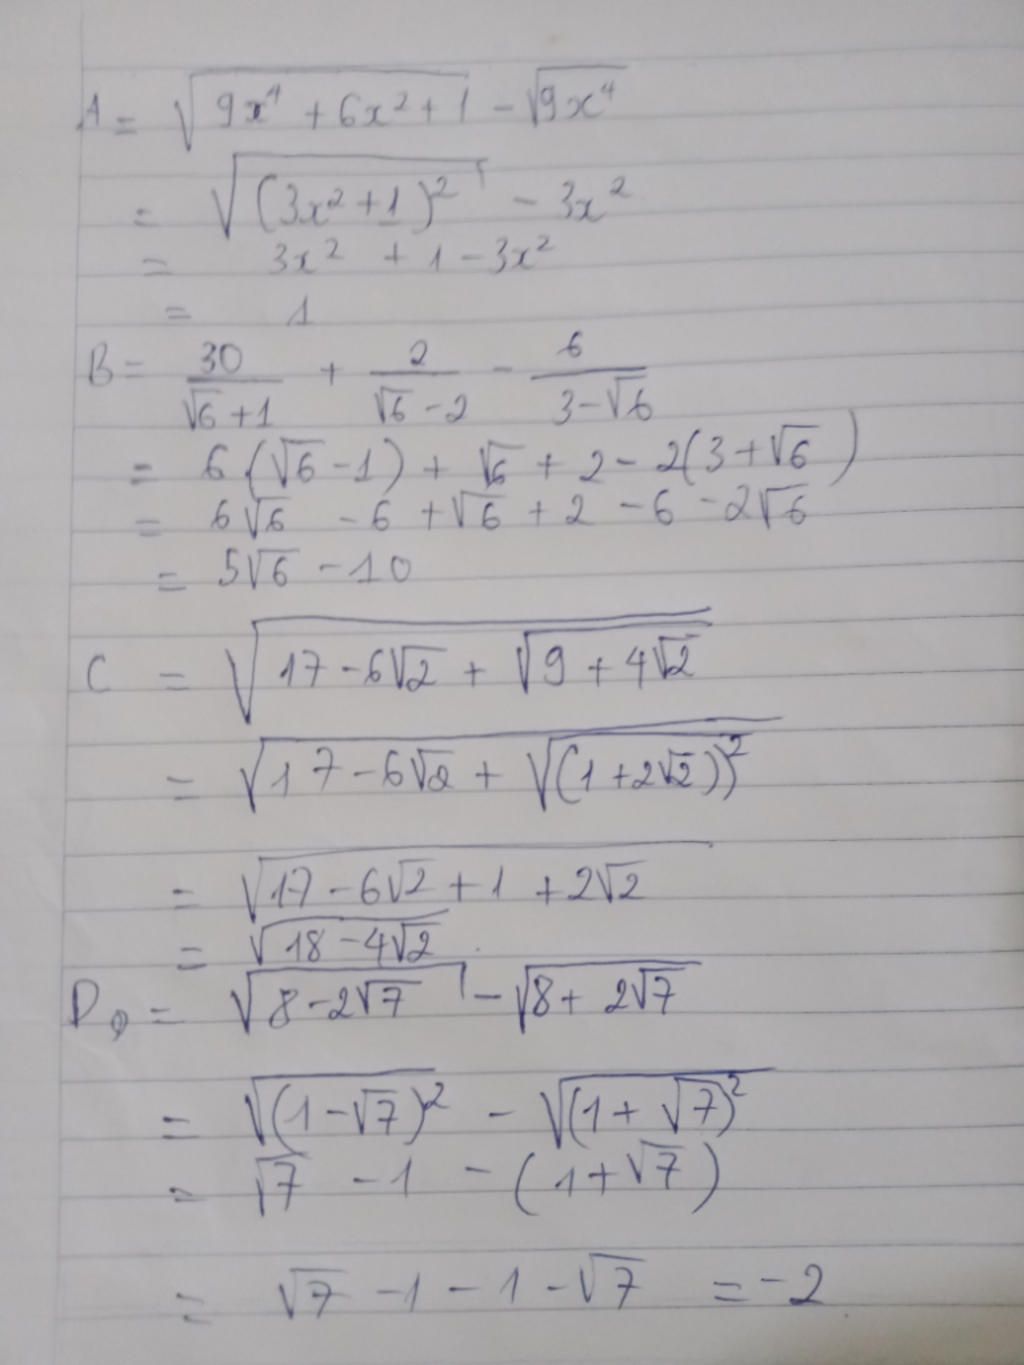 A = √(9x⁴ + 6x² + 1) - √(9x⁴)
= √((3x² + 1)²) - 3x²
= 3x² + 1 - 3x²
= 1
B = 30/(√6 + 1) + 2/(√6 - 2) - 6/(3 - √6)
= 6(√6 - 1) + √6 + 2 - 2(3 + √6)
= 6√6 - 6 + √6 + 2 - 6 - 2√6
= 5√6 - 10
C = √(17 - 6√2 + √(9 + 4√2))
= √(17 - 6√2 + √((1 + 2√2))²)
= √(17 - 6√2 + 1 + 2√2)
= √(18 - 4√2)
D = √(8 - 2√7) - √(8 + 2√7)
= √((1 - √7)²) - √((1 + √7)²)
= √7 - 1 - (1 + √7)
= √7 - 1 - 1 - √7 = -2